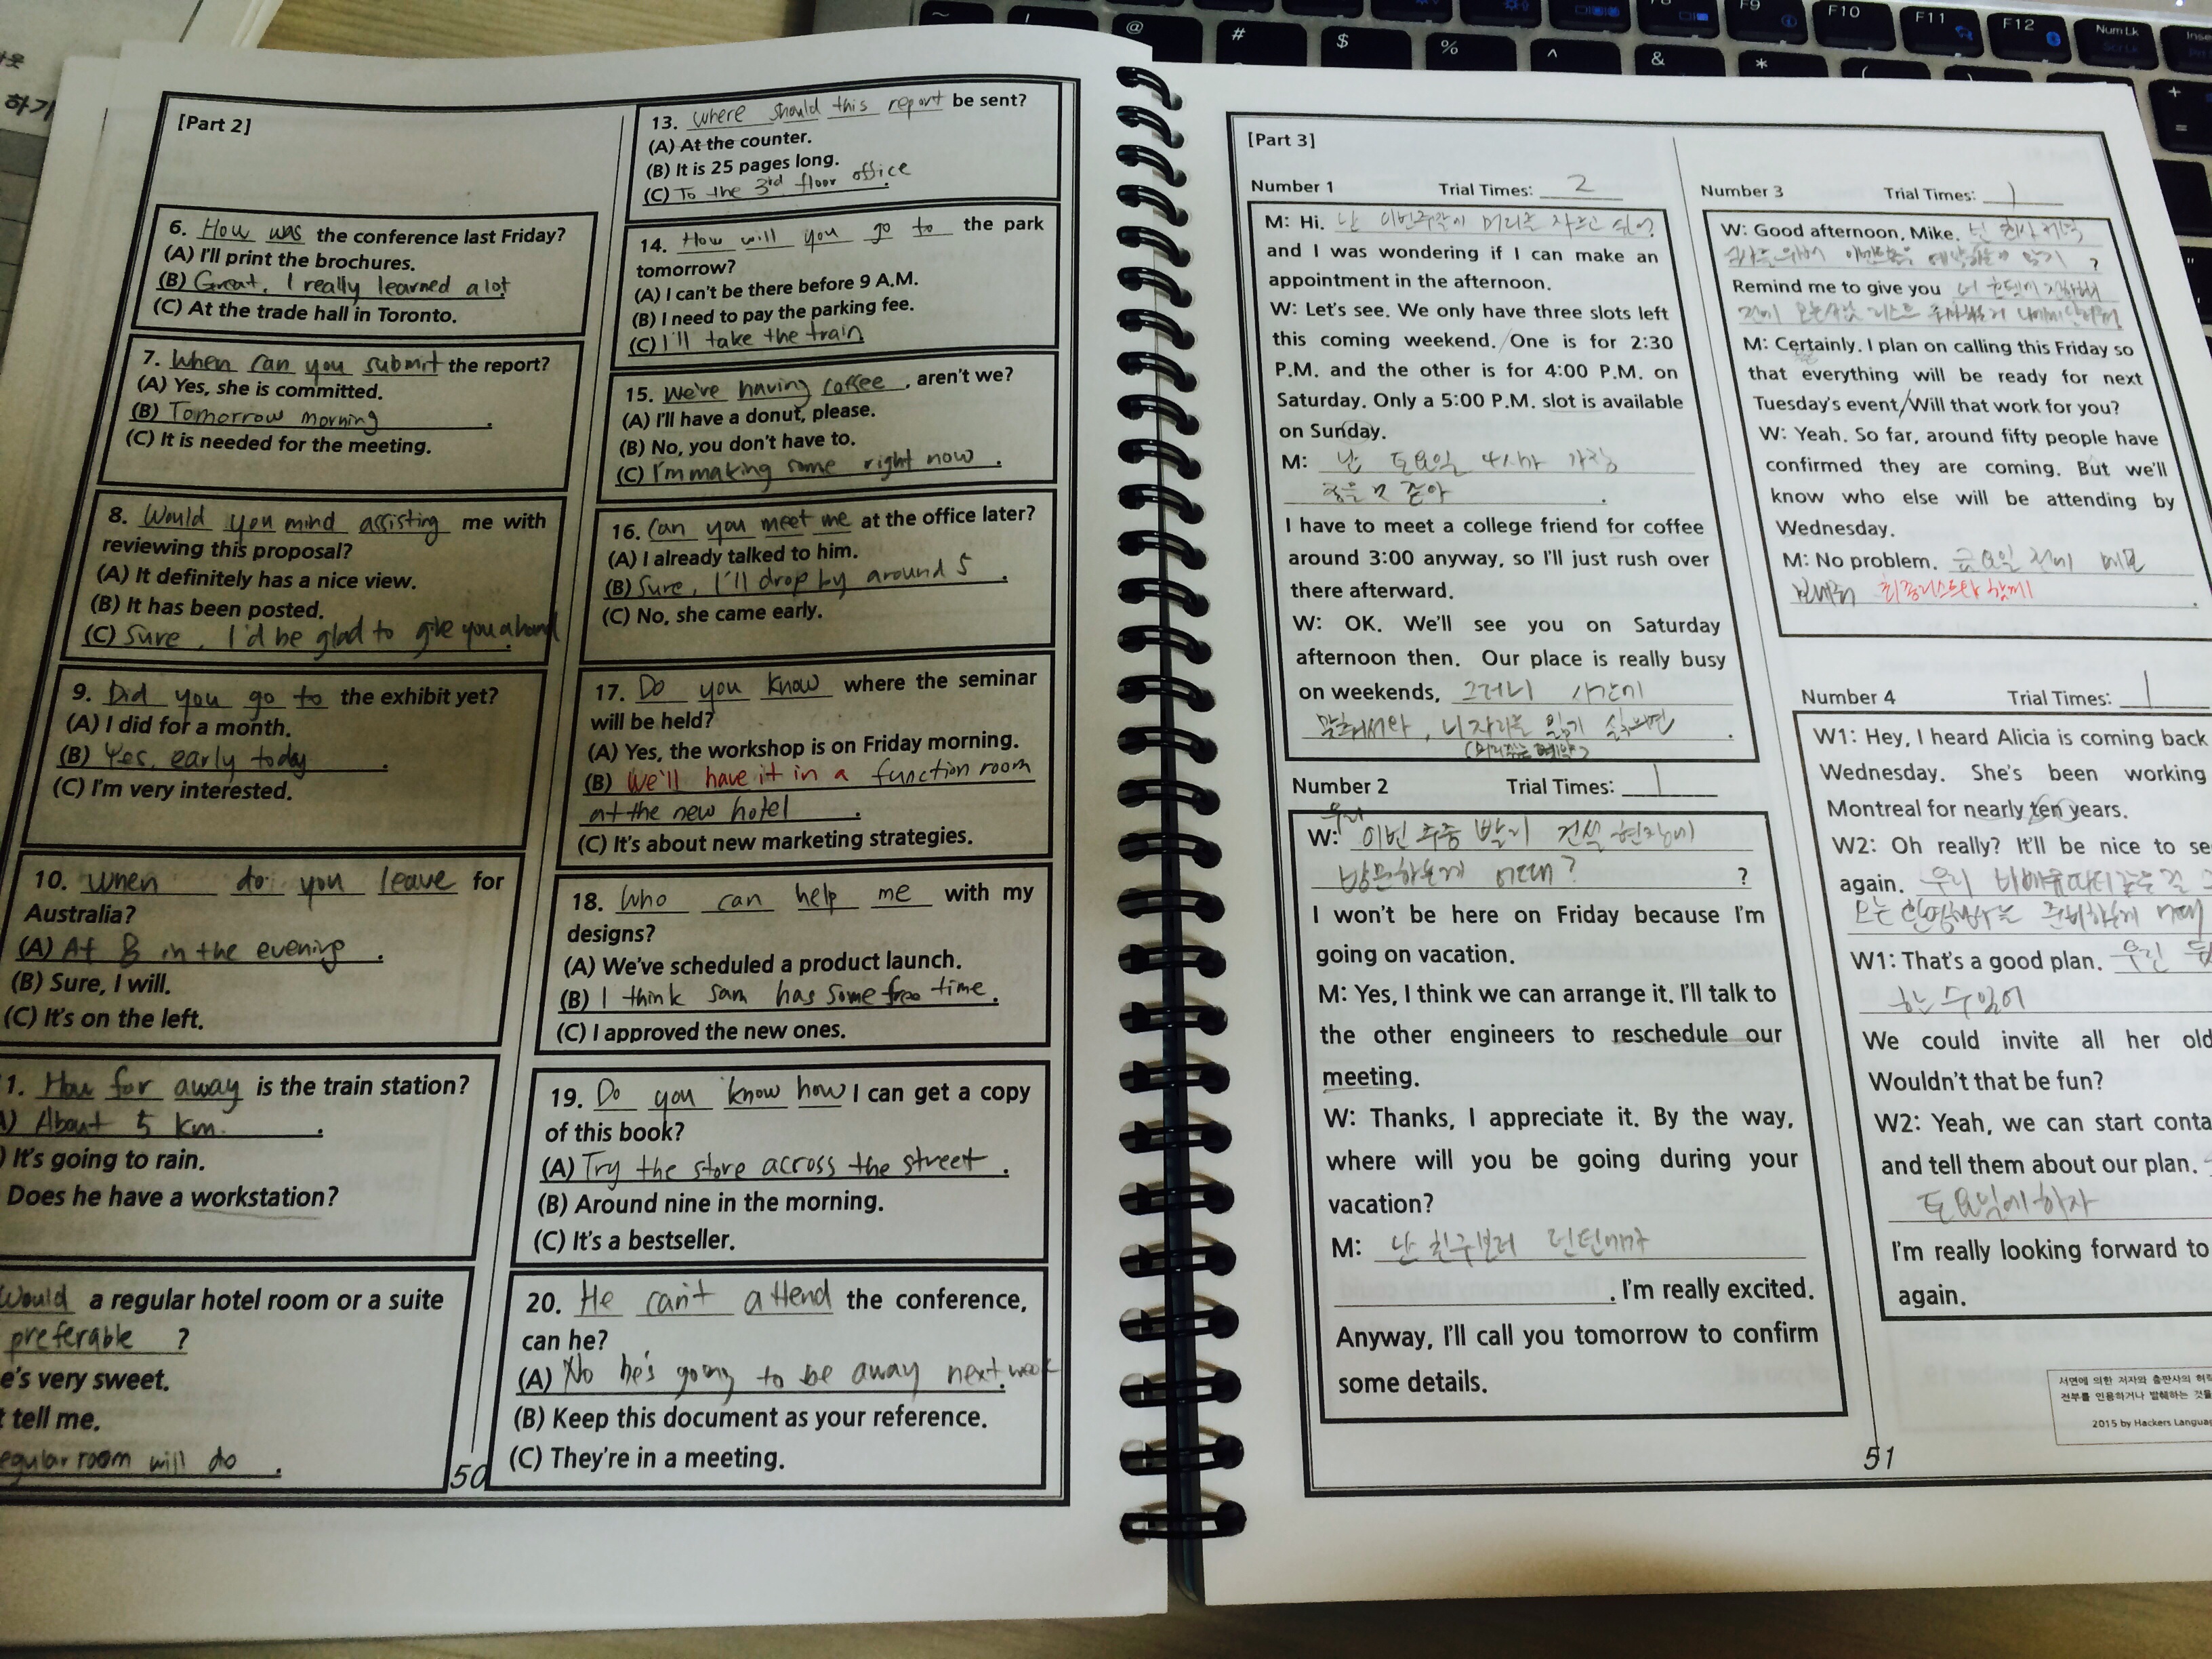 하기
[Part 2]
6. How was the conference last Friday?
(A) I'll print the brochures.
(B) Great, I really learned a lot
(C) At the trade hall in Toronto.
7. When can you submit the report?
(A) Yes, she is committed.
(B) Tomorrow morning.
(C) It is needed for the meeting.
8. Would you mind assisting me with
reviewing this proposal?
(A) It definitely has a nice view.
(B) It has been posted.
(C) Sure, I'd be glad to give you a hand.
9. Did you go to the exhibit yet?
(A) I did for a month.
(B) Yes, early today.
(C) I'm very interested.
10. When do you leave for
Australia?
(A) At 8 in the evening.
(B) Sure, I will.
(C) It's on the left.
1. How far away is the train station?
) About 5 km.
) It's going to rain.
Does he have a workstation?
Would a regular hotel room or a suite
preferable ?
e's very sweet.
t tell me.
egular room will do.
50
13. Where should this report be sent?
(A) At the counter.
(B) It is 25 pages long.
(C) To the 3rd floor office.
14. How will you go to the park
tomorrow?
(A) I can't be there before 9 A.M.
(B) I need to pay the parking fee.
(C) I'll take the train
15. We're having coffee, aren't we?
(A) I'll have a donut, please.
(B) No, you don't have to.
(C) I'm making some right now.
16. Can you meet me at the office later?
(A) I already talked to him.
(B) Sure, I'll drop by around 5.
(C) No, she came early.
17. Do you know where the seminar
will be held?
(A) Yes, the workshop is on Friday morning.
(B) We'll have it in a function room
at the new hotel.
(C) It's about new marketing strategies.
18. Who can help me with my
designs?
(A) We've scheduled a product launch.
(B) I think Sam has some free time.
(C) I approved the new ones.
19. Do you know how I can get a copy
of this book?
(A) Try the store across the street.
(B) Around nine in the morning.
(C) It's a bestseller.
20. He can't attend the conference,
can he?
(A) No he's going to be away next week.
(B) Keep this document as your reference.
(C) They're in a meeting.
[Part 3]
Number 1 Trial Times: 2
M: Hi. 난 이번주말에 머리를 자르고 싶어
and I was wondering if I can make an
appointment in the afternoon.
W: Let's see. We only have three slots left
this coming weekend. One is for 2:30
P.M. and the other is for 4:00 P.M. on
Saturday. Only a 5:00 P.M. slot is available
on Sunday.
M: 난 토요일 4시가 가장
좋아.
I have to meet a college friend for coffee
around 3:00 anyway, so I'll just rush over
there afterward.
W: OK. We'll see you on Saturday
afternoon then. Our place is really busy
on weekends, 그러니 시간에
맞춰서와, 니 자리를 잃기 싫으면.
Number 2 Trial Times: 1
우리
W: 이번 주중 빨리 건설 현장에
방문하는게 어때? ?
I won't be here on Friday because I'm
going on vacation.
M: Yes, I think we can arrange it. I'll talk to
the other engineers to reschedule our
meeting.
W: Thanks, I appreciate it. By the way,
where will you be going during your
vacation?
M: 난 친구보러 런던에가
. I'm really excited.
Anyway, I'll call you tomorrow to confirm
some details.
Number 3 Trial Times: 1
W: Good afternoon, Mike. 넌 회사
이벤트홀을 ?
Remind me to give you
전에 오는 리스트
M: Certainly. I plan on calling this Friday so
that everything will be ready for next
Tuesday's event. Will that work for you?
W: Yeah. So far, around fifty people have
confirmed they are coming. But we'll
know who else will be attending by
Wednesday.
M: No problem. 금요일 전에 메모
보내줘 최종리스트랑 함께.
Number 4 Trial Times: 1
W1: Hey, I heard Alicia is coming back
Wednesday. She's been working
Montreal for nearly ten years.
W2: Oh really? It'll be nice to se
again. 우리
오는 환영행사는 준비하는게 어때
W1: That's a good plan. 우린
할 수있어
We could invite all her old
Wouldn't that be fun?
W2: Yeah, we can start conta
and tell them about our plan.
토요일에하자
I'm really looking forward to
again.
서면에 의한 저자와 출판사의 허락
전부를 인용하거나 발췌하는 것을
2015 by Hackers Langua
51
@ # $ % ^ & * (
F9 F10 F11 F12 NumLk
ScrLk
Inse
+
=